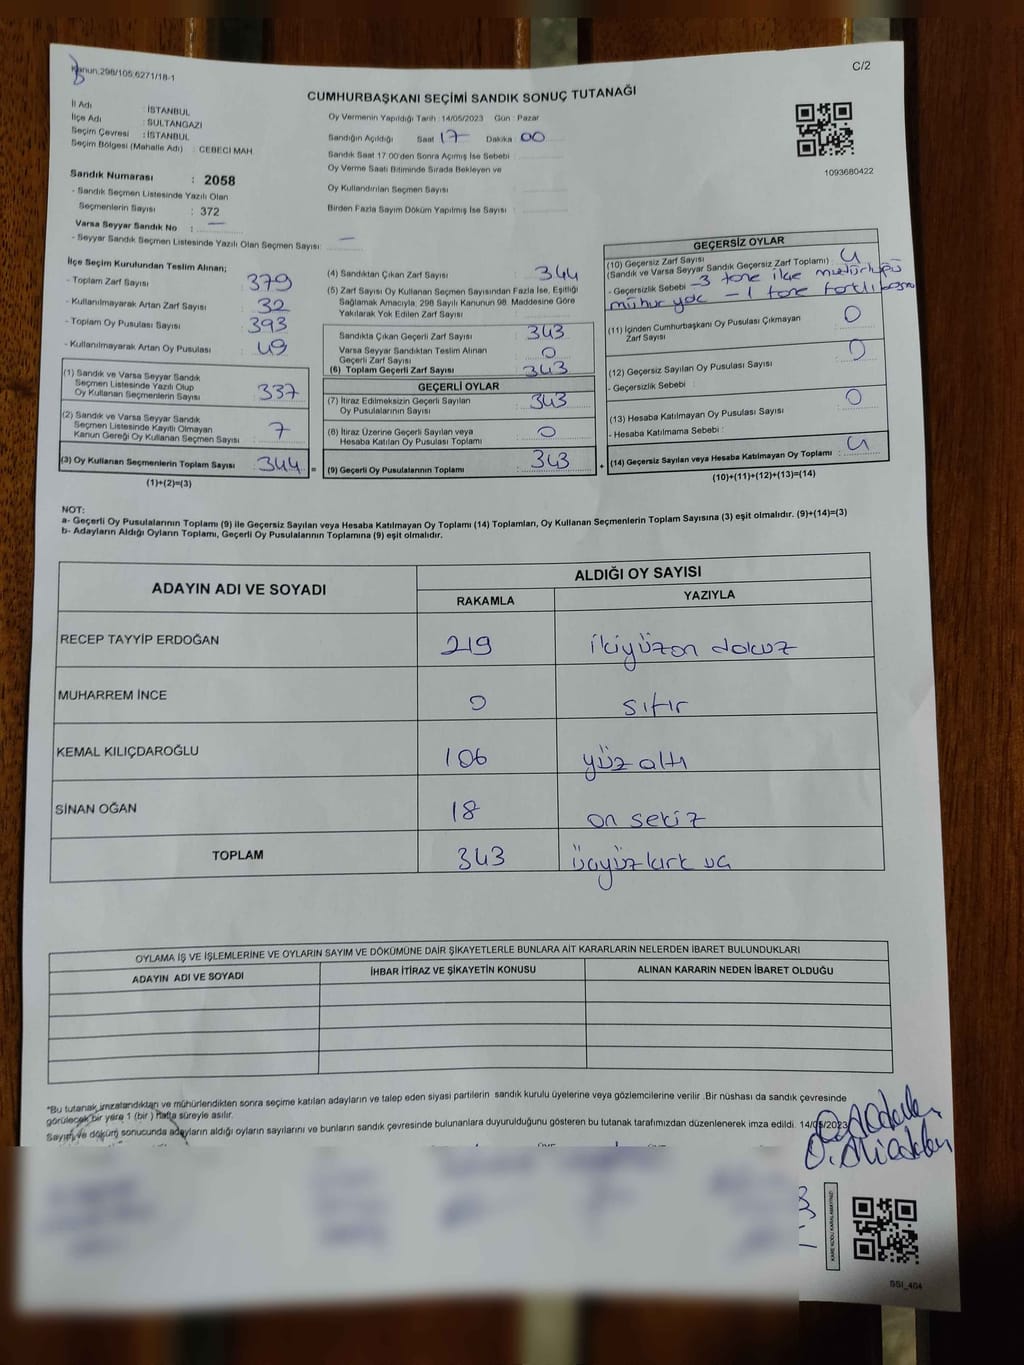 Kanun:298/105,6271/18-1
C/2
CUMHURBAŞKANI SEÇİMİ SANDIK SONUÇ TUTANAĞI
İl Adı : İSTANBUL
İlçe Adı : SULTANGAZİ
Seçim Çevresi : İSTANBUL
Seçim Bölgesi (Mahalle Adı) : CEBECİ MAH
Sandık Numarası : 2058
- Sandık Seçmen Listesinde Yazılı Olan
Seçmenlerin Sayısı : 372
Varsa Seyyar Sandık No : —
- Seyyar Sandık Seçmen Listesinde Yazılı Olan Seçmen Sayısı : —
Oy Vermenin Yapıldığı Tarih : 14/05/2023 Gün : Pazar
Sandığın Açıldığı Saat 17 Dakika 00
Sandık Saat 17:00'den Sonra Açımış İse Sebebi :
Oy Verme Saati Bitiminde Sırada Bekleyen ve
Oy Kullandırılan Seçmen Sayısı :
Birden Fazla Sayım Döküm Yapılmış İse Sayısı :
1093680422
İlçe Seçim Kurulundan Teslim Alınan;
- Toplam Zarf Sayısı : 379
- Kullanılmayarak Artan Zarf Sayısı : 32
- Toplam Oy Pusulası Sayısı : 393
- Kullanılmayarak Artan Oy Pusulası : 49
(1) Sandık ve Varsa Seyyar Sandık
Seçmen Listesinde Yazılı Olup
Oy Kullanan Seçmenlerin Sayısı : 337
(2) Sandık ve Varsa Seyyar Sandık
Seçmen Listesinde Kayıtlı Olmayan
Kanun Gereği Oy Kullanan Seçmen Sayısı : 7
(3) Oy Kullanan Seçmenlerin Toplam Sayısı : 344 =
(1)+(2)=(3)
(4) Sandıktan Çıkan Zarf Sayısı : 344
(5) Zarf Sayısı Oy Kullanan Seçmen Sayısından Fazla İse, Eşitliği
Sağlamak Amacıyla, 298 Sayılı Kanunun 98. Maddesine Göre
Yakılarak Yok Edilen Zarf Sayısı :
Sandıkta Çıkan Geçerli Zarf Sayısı : 343
Varsa Seyyar Sandıktan Teslim Alınan
Geçerli Zarf Sayısı : 0
(6) Toplam Geçerli Zarf Sayısı : 343
GEÇERLİ OYLAR
(7) İtiraz Edilmeksizin Geçerli Sayılan
Oy Pusulalarının Sayısı : 343
(8) İtiraz Üzerine Geçerli Sayılan veya
Hesaba Katılan Oy Pusulası Toplamı : 0
(9) Geçerli Oy Pusulalarının Toplamı : 343 +
GEÇERSİZ OYLAR
(10) Geçersiz Zarf Sayısı
(Sandık ve Varsa Seyyar Sandık Geçersiz Zarf Toplamı) : 4
- Geçersizlik Sebebi - 3 tane ilçe
mühür yok - 1 tane farklı
(11) İçinden Cumhurbaşkanı Oy Pusulası Çıkmayan
Zarf Sayısı : 0
(12) Geçersiz Sayılan Oy Pusulası Sayısı : 0
- Geçersizlik Sebebi :
(13) Hesaba Katılmayan Oy Pusulası Sayısı : 0
- Hesaba Katılmama Sebebi :
(14) Geçersiz Sayılan veya Hesaba Katılmayan Oy Toplamı : 4
(10)+(11)+(12)+(13)=(14)
NOT:
a- Geçerli Oy Pusulalarının Toplamı (9) ile Geçersiz Sayılan veya Hesaba Katılmayan Oy Toplamı (14) Toplamları, Oy Kullanan Seçmenlerin Toplam Sayısına (3) eşit olmalıdır. (9)+(14)=(3)
b- Adayların Aldığı Oyların Toplamı, Geçerli Oy Pusulalarının Toplamına (9) eşit olmalıdır.
ADAYIN ADI VE SOYADI
ALDIĞI OY SAYISI
RAKAMLA YAZIYLA
RECEP TAYYİP ERDOĞAN 219 ikiyüzon dokuz
MUHARREM İNCE 0 sıfır
KEMAL KILIÇDAROĞLU 106 yüz altı
SİNAN OĞAN 18 on sekiz
TOPLAM 343 üçyüzkırk üç
OYLAMA İŞ VE İŞLEMLERİNE VE OYLARIN SAYIM VE DÖKÜMÜNE DAİR ŞİKAYETLERLE BUNLARA AİT KARARLARIN NELERDEN İBARET BULUNDUKLARI
ADAYIN ADI VE SOYADI İHBAR İTİRAZ VE ŞİKAYETİN KONUSU ALINAN KARARIN NEDEN İBARET OLDUĞU
*Bu tutanak imzalandıktan ve mühürlendikten sonra seçime katılan adayların ve talep eden siyasi partilerin sandık kurulu üyelerine veya gözlemcilerine verilir .Bir nüshası da sandık çevresinde
görülecek bir yere 1 (bir ) hafta süreyle asılır.
Sayım ve döküm sonucunda adayların aldığı oyların sayılarını ve bunların sandık çevresinde bulunanlara duyurulduğunu gösteren bu tutanak tarafımızdan düzenlenerek imza edildi. 14/05/2023
KARE KODU KARALAMAYINIZ!
SSI_404